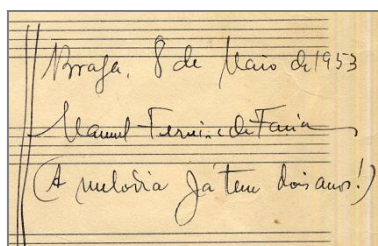 Braga, 8 de Maio de 1953
Manuel Ferreira de Faria
(A melodia já tem dois anos!)